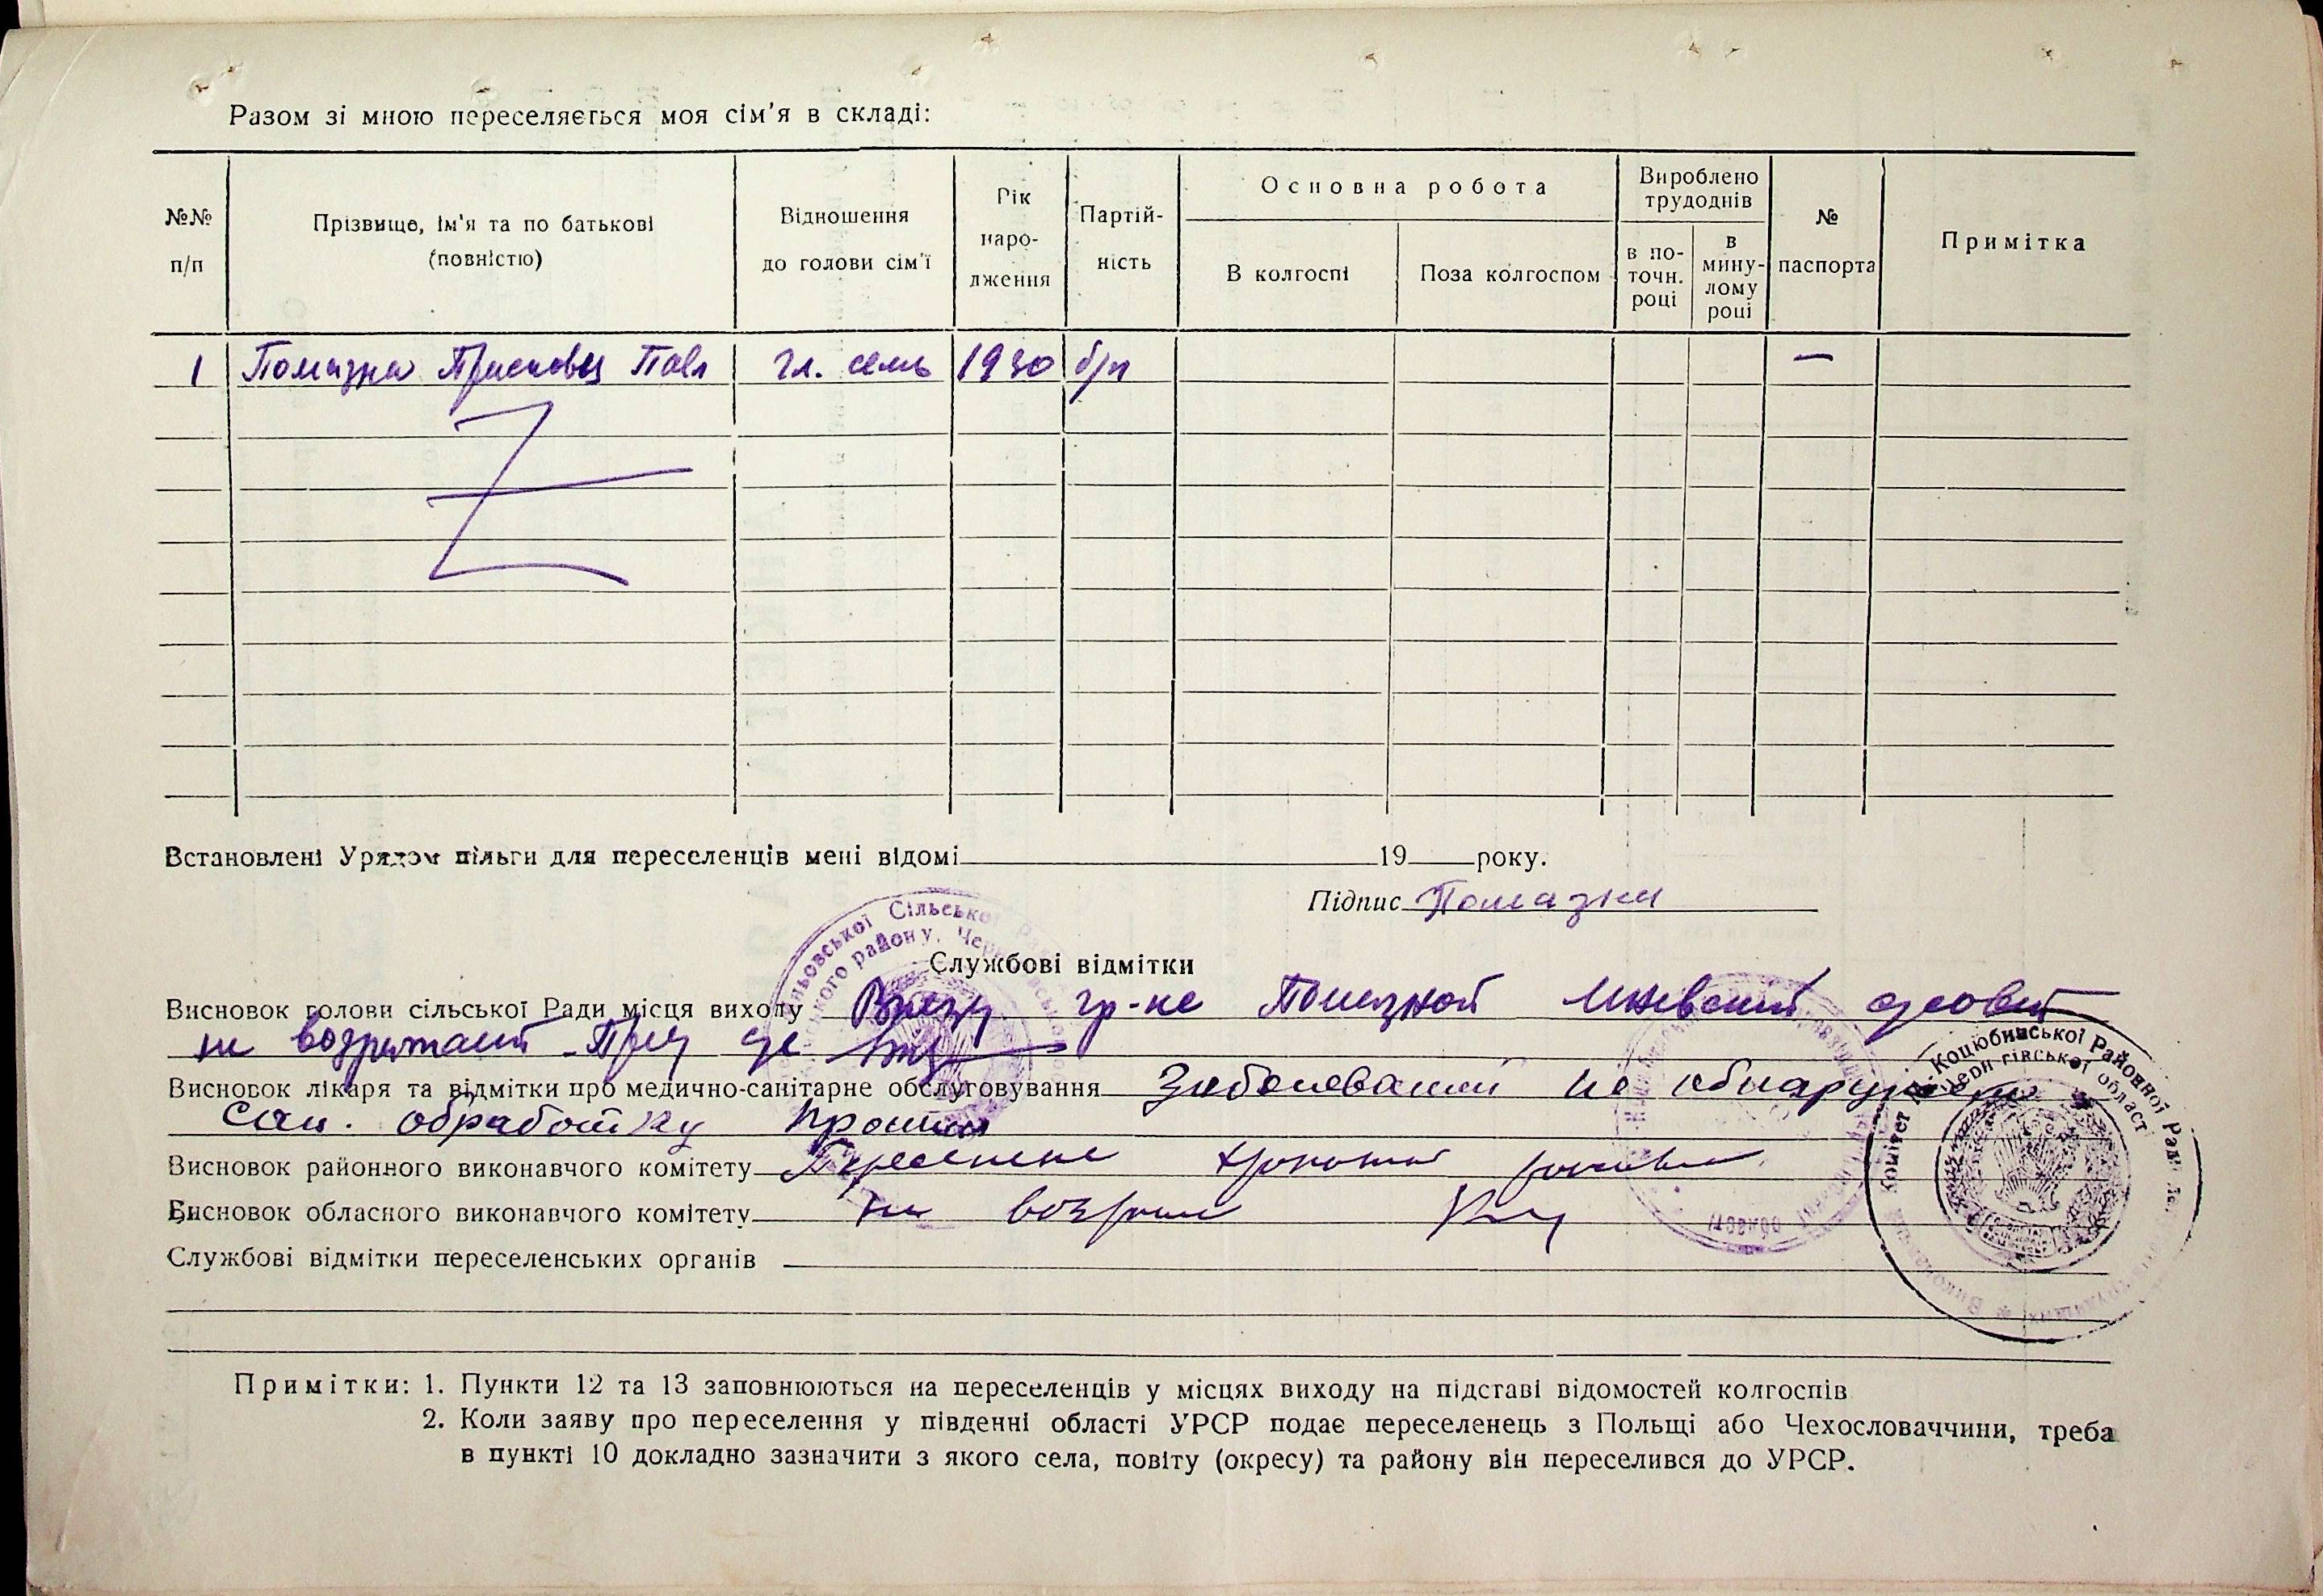 Разом зі мною переселяється моя сім'я в складі:
№№ п/п
Прізвище, ім'я та по батькові (повністю)
Відношення до голови сім'ї
Рік наро-дження
Партій-ність
Основна робота
В колгоспі
Поза колгоспом
Вироблено трудоднів
в по-точн. році
в мину-лому році
№ паспорта
Примітка
1 Помазна Пав гл. семь 1930 б/п —
Встановлені Урядом пільги для переселенців мені відомі 19 року.
Підпис
Службові відмітки
Висновок голови сільської Ради місця виходу гр-ке Помазной
не возражает
Висновок лікаря та відмітки про медично-санітарне обслуговування Заболеваний не обнаружено
Сан. обработку прошла
Висновок районного виконавчого комітету
Висновок обласного виконавчого комітету не
Службові відмітки переселенських органів
Коцюбинської Районної Ради
Примітки: 1. Пункти 12 та 13 заповнюються на переселенців у місцях виходу на підставі відомостей колгоспів
2. Коли заяву про переселення у південні області УРСР подає переселенець з Польщі або Чехословаччини, треба
в пункті 10 докладно зазначити з якого села, повіту (окресу) та району він переселився до УРСР.